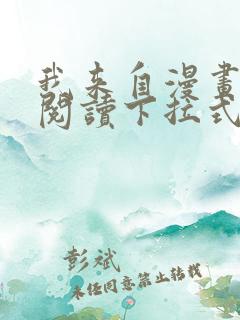 我来自漫畫
閱讀下拉式
彭斌
未经同意禁止转载